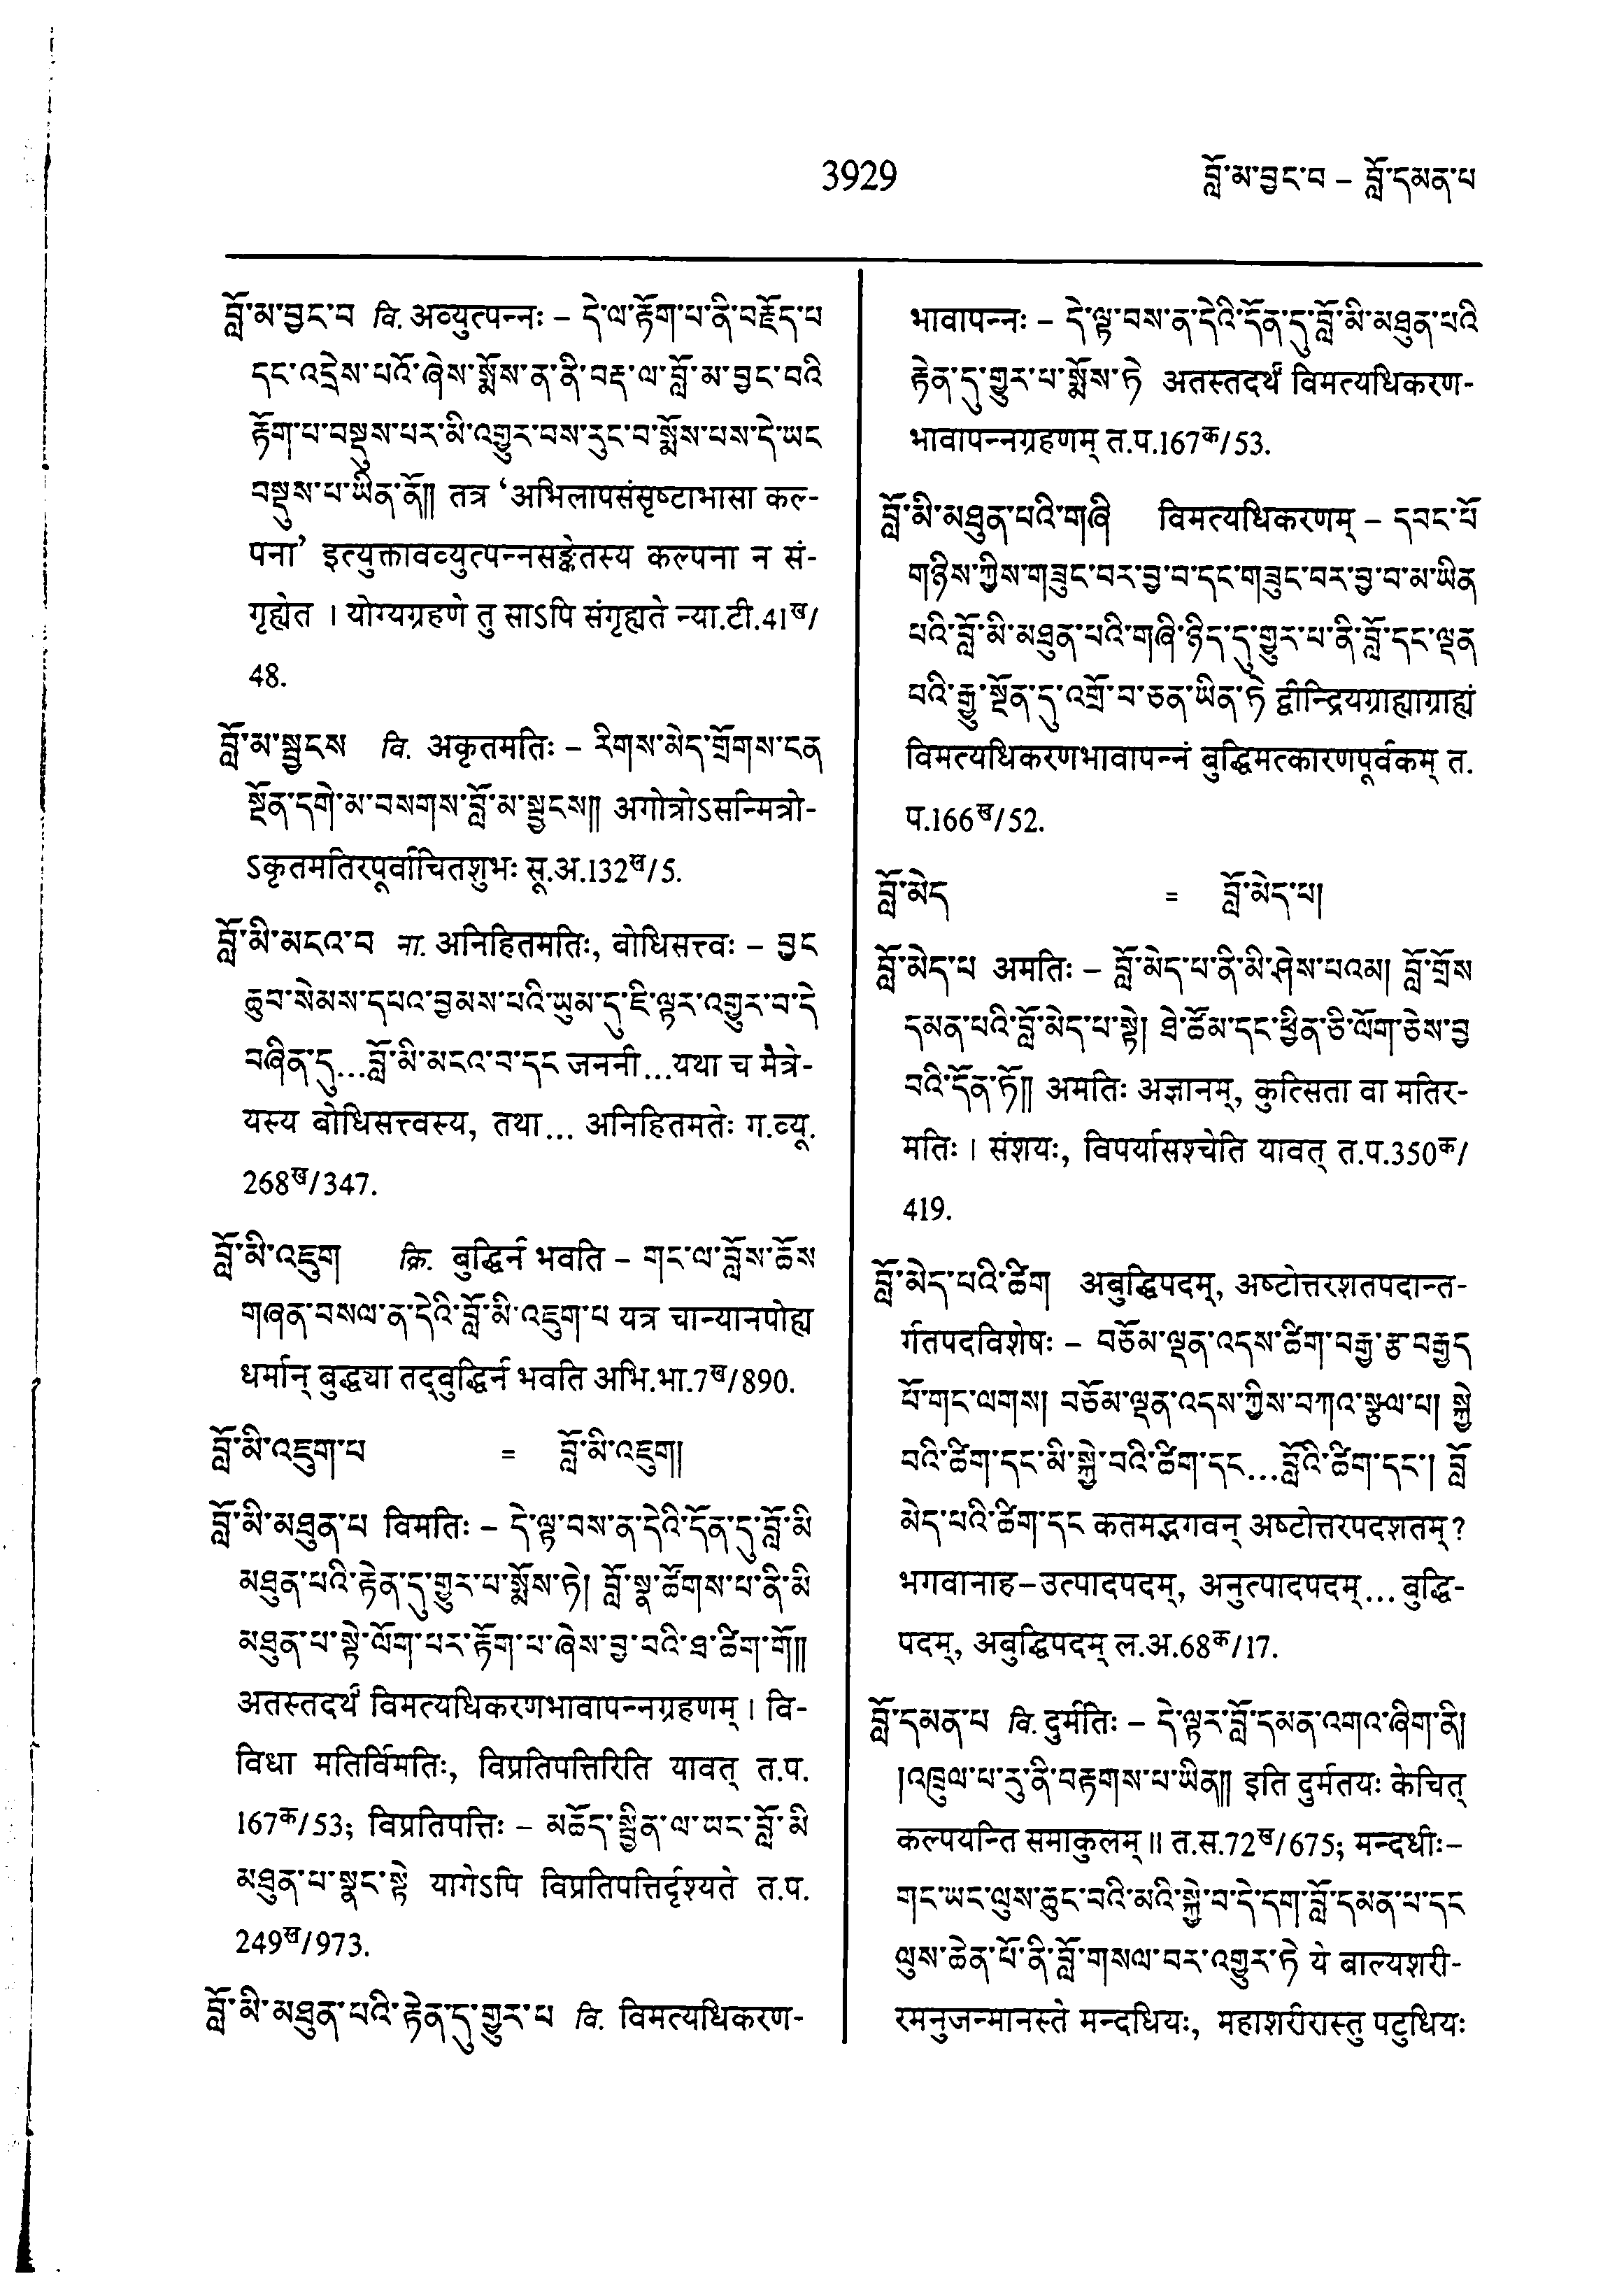 3929
བློ་མ་བྱང་བ – བློ་དམན་པ
བློ་མ་བྱང་བ वि. अव्युत्पन्नः – དེ་ལ་རྟོག་པ་ནི་བརྗོད་པ
དང་འདྲེས་པའོ་ཞེས་སྨོས་ན་ནི་བརྡ་ལ་བློ་མ་བྱང་བའི
རྟོག་པ་བསྡུས་པར་མི་འགྱུར་བས་རུང་བ་སྨོས་པས་དེ་ཡང
བསྡུས་པ་ཡིན་ནོ།། तत्र ‘अभिलापसंसृष्टाभासा कल्-
पना’ इत्युक्तावव्युत्पन्नसङ्केतस्य कल्पना न सं-
गृह्येत । योग्यग्रहणे तु साऽपि संगृह्यते न्या.टी.41ख/
48.
བློ་མ་སྦྱངས वि. अकृतमतिः – རིགས་མེད་གྲོགས་ངན
སྔོན་དགེ་མ་བསགས་བློ་མ་སྦྱངས།། अगोत्रोऽसन्मित्रो-
ऽकृतमतिरपूर्वाचितशुभः सू.अ.132ख/5.
བློ་མི་མངའ་བ ना. अनिहितमतिः, बोधिसत्त्वः – བྱང
ཆུབ་སེམས་དཔའ་བྱམས་པའི་ཡུམ་དུ་ཇི་ལྟར་འགྱུར་བ་དེ
བཞིན་དུ...བློ་མི་མངའ་བ་དང जननी...यथा च मैत्रे-
यस्य बोधिसत्त्वस्य, तथा... अनिहितमतेः ग.व्यू.
268ख/347.
བློ་མི་འཇུག क्रि. बुद्धिर्न भवति – གང་ལ་བློས་ཆོས
གཞན་བསལ་ན་དེའི་བློ་མི་འཇུག་པ यत्र चान्यानपोह्य
धर्मान् बुद्ध्या तद्बुद्धिर्न भवति अभि.भा.7ख/890.
བློ་མི་འཇུག་པ = བློ་མི་འཇུག།
བློ་མི་མཐུན་པ विमतिः – དེ་ལྟ་བས་ན་དེའི་དོན་དུ་བློ་མི
མཐུན་པའི་རྟེན་དུ་གྱུར་པ་སྨོས་ཏེ། བློ་སྣ་ཚོགས་པ་ནི་མི
མཐུན་པ་སྟེ་ལོག་པར་རྟོག་པ་ཞེས་བྱ་བའི་ཐ་ཚིག་གོ།།
अतस्तदर्थं विमत्यधिकरणभावापन्नग्रहणम् । वि-
विधा मतिर्विमतिः, विप्रतिपत्तिरिति यावत् त.प.
167क/53; विप्रतिपत्तिः – མཆོད་སྦྱིན་ལ་ཡང་བློ་མི
མཐུན་པ་སྣང་སྟེ यागेऽपि विप्रतिपत्तिर्दृश्यते त.प.
249ख/973.
བློ་མི་མཐུན་པའི་རྟེན་དུ་གྱུར་པ वि. विमत्यधिकरण-
भावापन्नः – དེ་ལྟ་བས་ན་དེའི་དོན་དུ་བློ་མི་མཐུན་པའི
རྟེན་དུ་གྱུར་པ་སྨོས་ཏེ अतस्तदर्थं विमत्यधिकरण-
भावापन्नग्रहणम् त.प.167क/53.
བློ་མི་མཐུན་པའི་གཞི विमत्यधिकरणम् – དབང་པོ
གཉིས་ཀྱིས་གཟུང་བར་བྱ་བ་དང་གཟུང་བར་བྱ་བ་མ་ཡིན
པའི་བློ་མི་མཐུན་པའི་གཞི་ཉིད་དུ་གྱུར་པ་ནི་བློ་དང་ལྡན
པའི་རྒྱུ་སྔོན་དུ་འགྲོ་བ་ཅན་ཡིན་ཏེ द्वीन्द्रियग्राह्याग्राह्यं
विमत्यधिकरणभावापन्नं बुद्धिमत्कारणपूर्वकम् त.
प.166ख/52.
བློ་མེད = བློ་མེད་པ།
བློ་མེད་པ अमतिः – བློ་མེད་པ་ནི་མི་ཤེས་པའམ། བློ་གྲོས
དམན་པའི་བློ་མེད་པ་སྟེ། ཐེ་ཚོམ་དང་ཕྱིན་ཅི་ལོག་ཅེས་བྱ
བའི་དོན་ཏོ།། अमतिः अज्ञानम्, कुत्सिता वा मतिर-
मतिः । संशयः, विपर्यासश्चेति यावत् त.प.350क/
419.
བློ་མེད་པའི་ཚིག अबुद्धिपदम्, अष्टोत्तरशतपदान्त-
र्गतपदविशेषः – བཅོམ་ལྡན་འདས་ཚིག་བརྒྱ་རྩ་བརྒྱད
པོ་གང་ལགས། བཅོམ་ལྡན་འདས་ཀྱིས་བཀའ་སྩལ་པ། སྐྱེ
བའི་ཚིག་དང་མི་སྐྱེ་བའི་ཚིག་དང...བློའི་ཚིག་དང་། བློ
མེད་པའི་ཚིག་དང कतमद्भगवन् अष्टोत्तरपदशतम् ?
भगवानाह–उत्पादपदम्, अनुत्पादपदम्... बुद्धि-
पदम्, अबुद्धिपदम् ल.अ.68क/17.
བློ་དམན་པ वि. दुर्मतिः – དེ་ལྟར་བློ་དམན་འགའ་ཞིག་ནི།
།འཁྲུལ་པ་རུ་ནི་བརྟགས་པ་ཡིན།། इति दुर्मतयः केचित्
कल्पयन्ति समाकुलम् ॥ त.स.72ख/675; मन्दधीः–
གང་ཡང་ལུས་ཆུང་བའི་མའི་སྐྱེ་བ་དེ་དག་བློ་དམན་པ་དང
ལུས་ཆེན་པོ་ནི་བློ་གསལ་བར་འགྱུར་ཏེ ये बाल्यशरी-
रमनुजन्मानस्ते मन्दधियः, महाशरीरास्तु पटुधियः